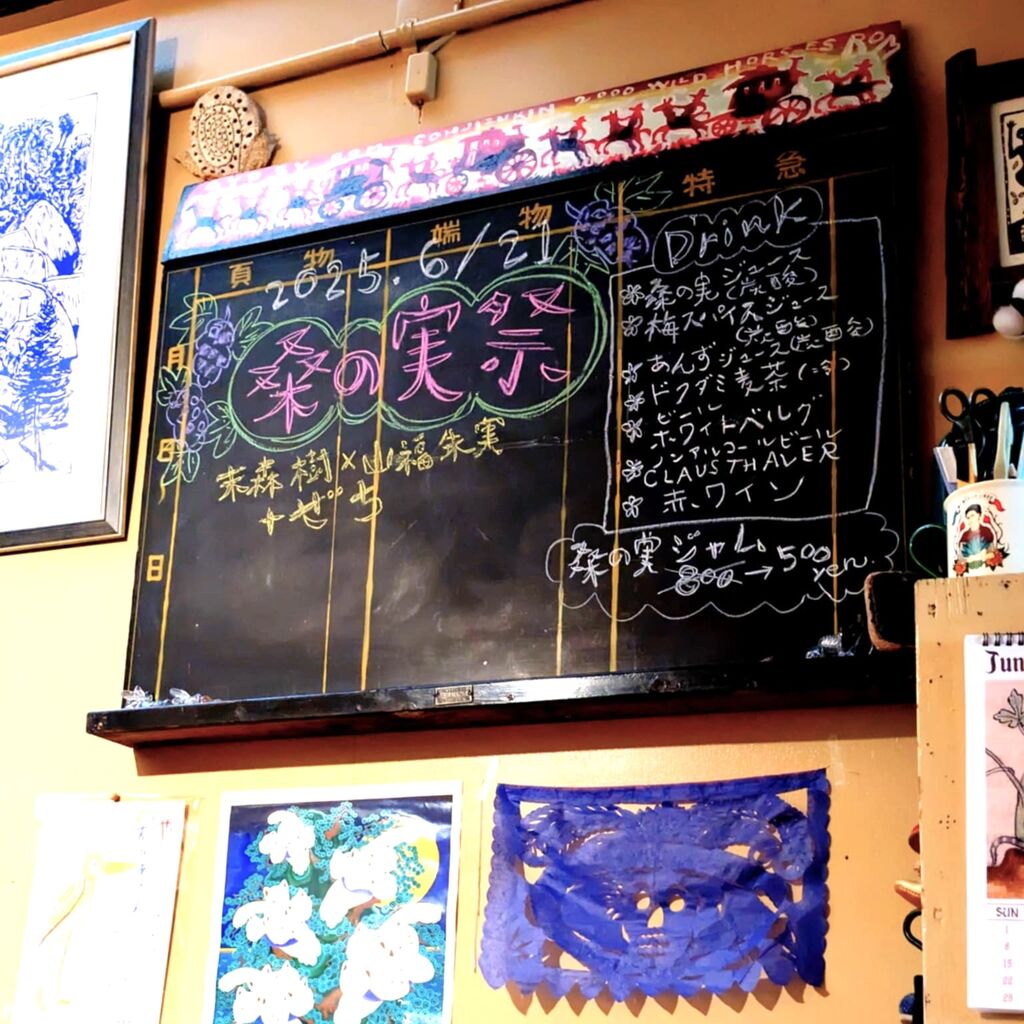 2,000 WILD HORSES
頁物 端物 特急
2025.6/21
桑の実祭
末森樹×山福朱実
+ぜち
月
日
日
Drink
桑の実ジュース
(炭酸)
梅スパイスジュース
(炭酸)
あんずジュース(炭酸)
ドクダミ麦茶(冷)
ビール
ホワイトベルグ
ノンアルコールビール
CLAUSTHALER
赤ワイン
桑の実ジャム
800→500
yen
Jun
SUN
1
8
15
22
29